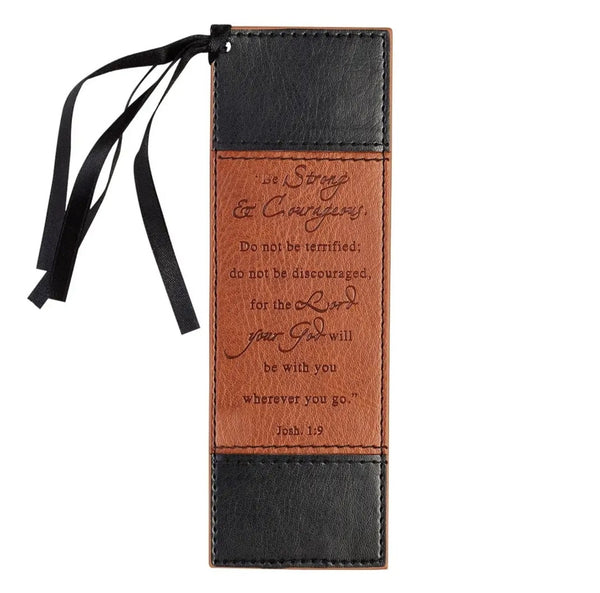 "Be Strong
& Courageous.
Do not be terrified;
do not be discouraged,
for the Lord
your God will
be with you
wherever you go."
Josh. 1:9